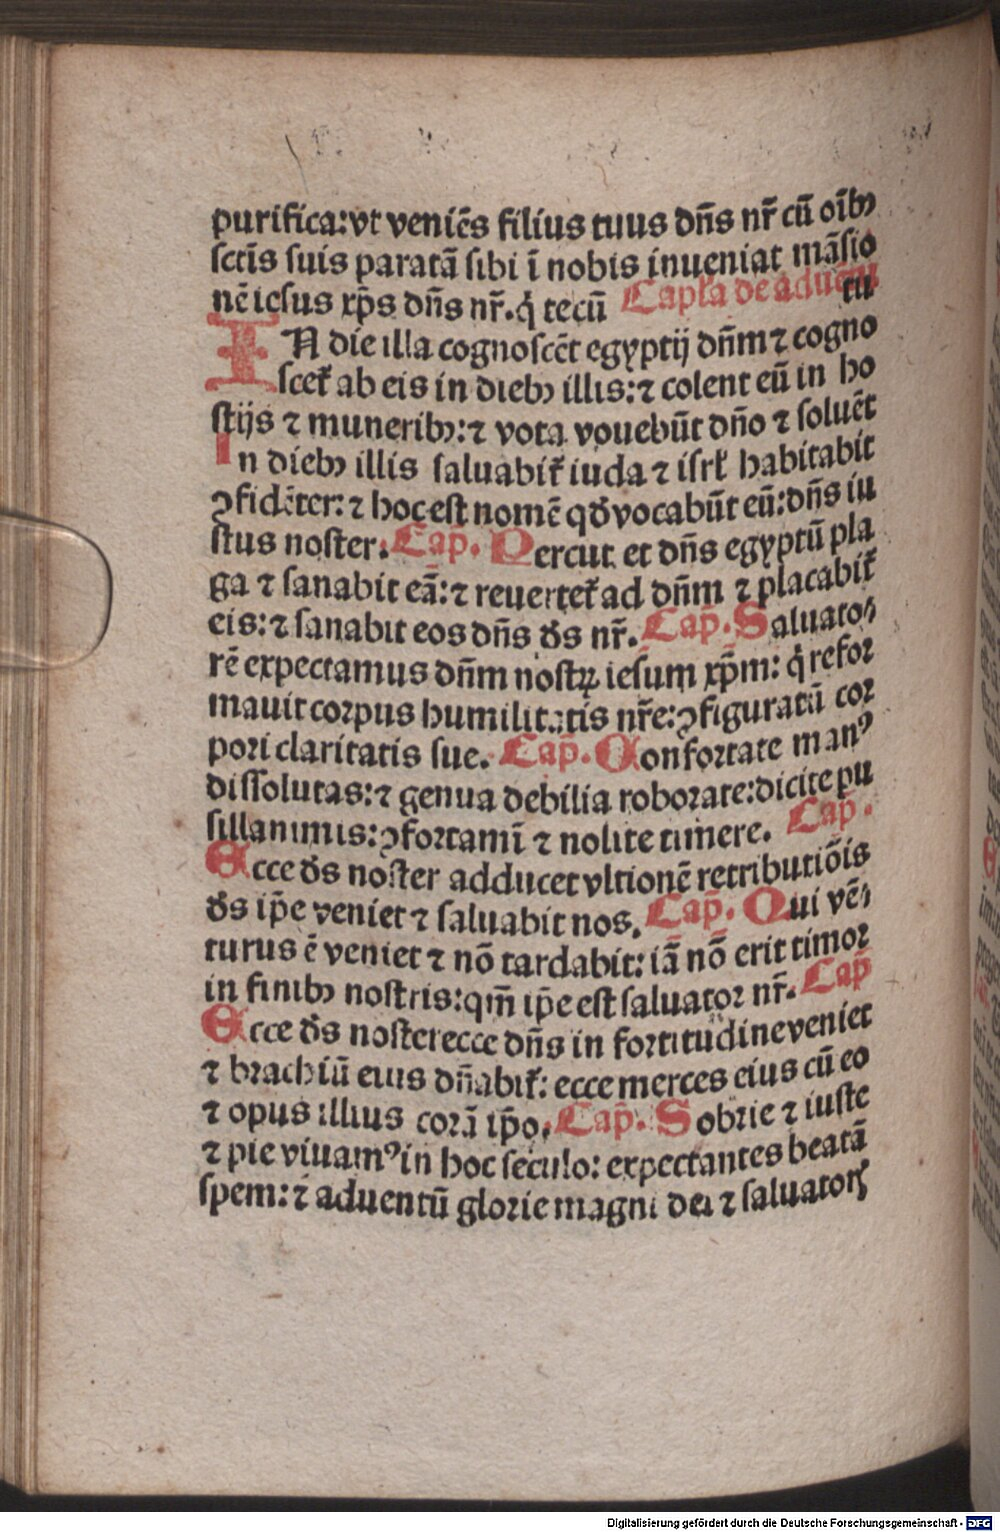 purifica:vt veniẽs filius tuus dñs nr̃ cũ oĩbꝫ
sctĩs suis paratã sibi ĩ nobis inueniat mãsio
nẽ iesus xp̃s dñs nr̃.q̇ tecũ Capl'a de aduẽtu
tu
IN die illa cognoscẽt egyptij dñm ⁊ cogno
scet̃ ab eis in diebꝫ illis:⁊ colent eũ in ho
stijs ⁊ muneribꝫ:⁊ vota vouebũt dño ⁊ soluẽt
In diebꝫ illis saluabit̃ iuda ⁊ isrl̃ habitabit
ꝯfidẽter:⁊ hoc est nomẽ qď vocabũt eũ:dñs iu
stus noster. Cap̃. Percut et dñs egyptũ pla
ga ⁊ sanabit eã:⁊ reuertet̃ ad dñm ⁊ placabit̃
eis:⁊ sanabit eos dñs ďs nr̃. Cap̃. Saluato⸗
rẽ expectamus dñm nostꝝ iesum xp̃m: q̇ refor
mauit corpus humilitatis nr̃e:ꝯfiguratũ cor
pori claritatis sue. Cap̃. Confortate manꝰ
dissolutas:⁊ genua debilia roborate:dicite pu
sillanimis:ꝯfortamĩ ⁊ nolite timere. Cap̃.
Ecce ďs noster adducet vltionẽ retributiõis
ďs ip̃e veniet ⁊ saluabit nos. Cap̃. Qui vẽ⸗
turus ẽ veniet ⁊ nõ tardabit: iã nõ erit timor
in finibꝫ nostris:qm̃ ip̃e est saluator nr̃. Cap̃
Ecce ďs noster ecce dñs in fortitudine veniet
⁊ brachiũ eius dñabit̃: ecce merces eius cũ eo
⁊ opus illius corã ip̃o. Cap̃. Sobrie ⁊ iuste
⁊ pie viuamꝰ in hoc seculo: expectantes beatã
spem:⁊ aduentũ glorie magni dei ⁊ saluatorꝭ
Digitalisierung gefördert durch die Deutsche Forschungsgemeinschaft - DFG